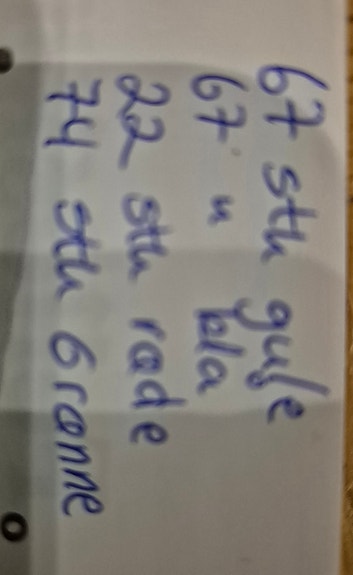 67 sth gule
67 " bla
22 sth rode
74 sth Gronne